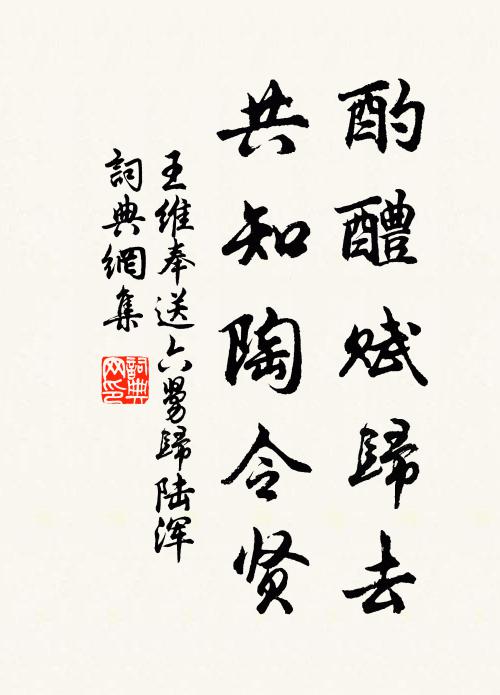 酌醴赋歸去
共知陶令贤
王維奉送六舅歸陆浑
詞典網集
詞典网印